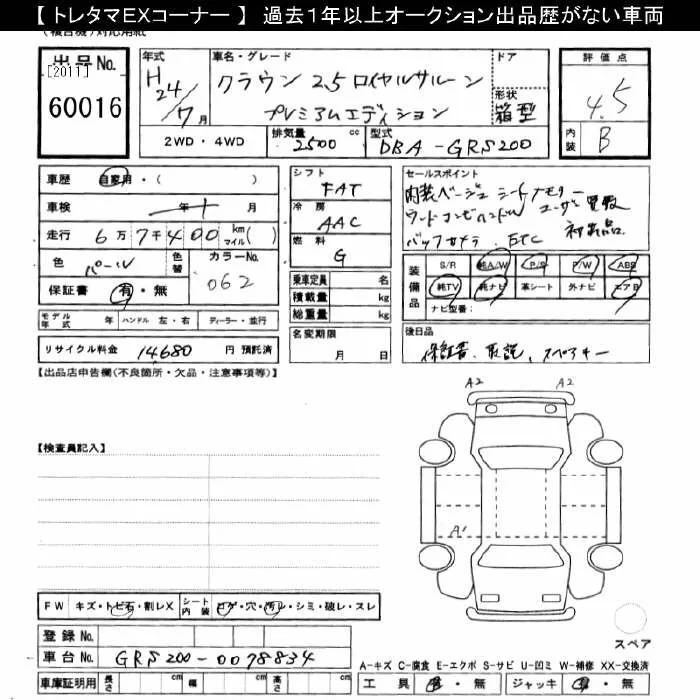 【 トレタマＥＸコーナー 】 過去１年以上オークション出品歴がない車両
出品No.
[2011]
60016
年式
H24/7月
車名・グレード
クラウン 2.5 ロイヤルサルーン
プレミアムエディション
ドア
形状
箱型
評価点
4.5
内装
B
2WD・4WD
排気量
2500
cc
型式
DBA-GRS200
車歴
自家用・( )
車検
年 月
走行
6万7千400
km
マイル( )
色
パール
色替
カラーNo.
062
保証書
有・無
シフト
FAT
冷房
AAC
燃料
G
乗車定員 名
積載量 kg
総重量 kg
セールスポイント
内装ベージュ シート
バックカメラ. ETC
装備品
S/R
純A/W
P/S
P/W
ABS
純TV
純ナビ
革シート
外ナビ
エアB
ナビ型番:
モデル年式 年
ハンドル 左・右
ディーラー・並行
リサイクル料金 14680 円 預託済
名変期限
月 日
後日品
保証書. 取説. スペアキー
【出品店申告欄(不良箇所・欠品・注意事項等)】
A2 A2
【検査員記入】
A1
FW キズ・トビ石・割レX
シート内装 コゲ・穴・汚レ・シミ・破レ・スレ
登録No.
車台No. GRS200-0078834
車庫証明用 長さ cm 幅 cm 高さ cm
スペア
A-キズ C-腐食 E-エクボ S-サビ U-凹ミ W-補修 XX-交換済
工具 有・無 ジャッキ 有・無